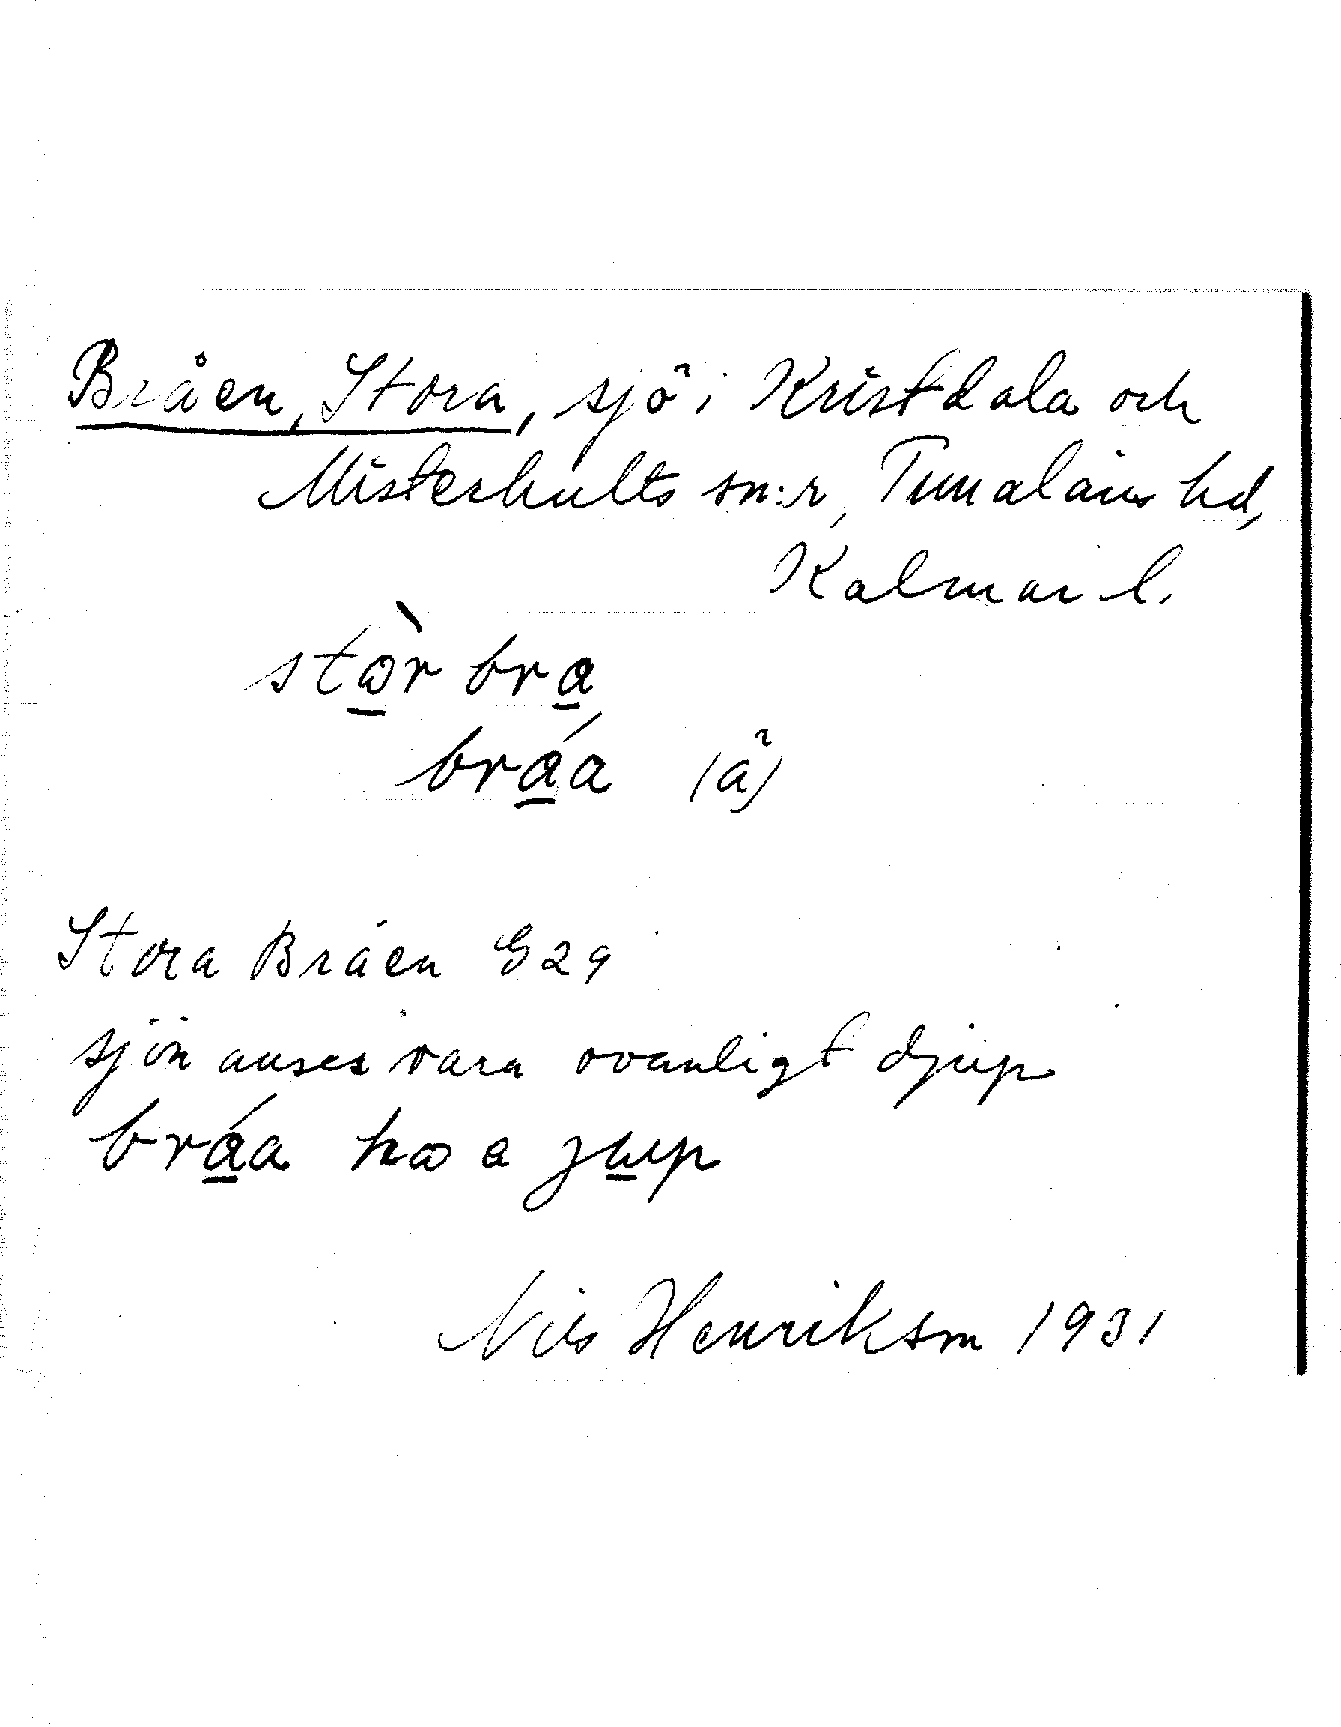 Bråen, Stora, sjö i Kristdala och
Misterhults sn:r, Tunaläns hd,
Kalmar l.
stòr bra
bráa (ã)
Stora Bråen G29
sjön anses vara ovanligt djup
bráa æ jup
Nils Henrikson 1931